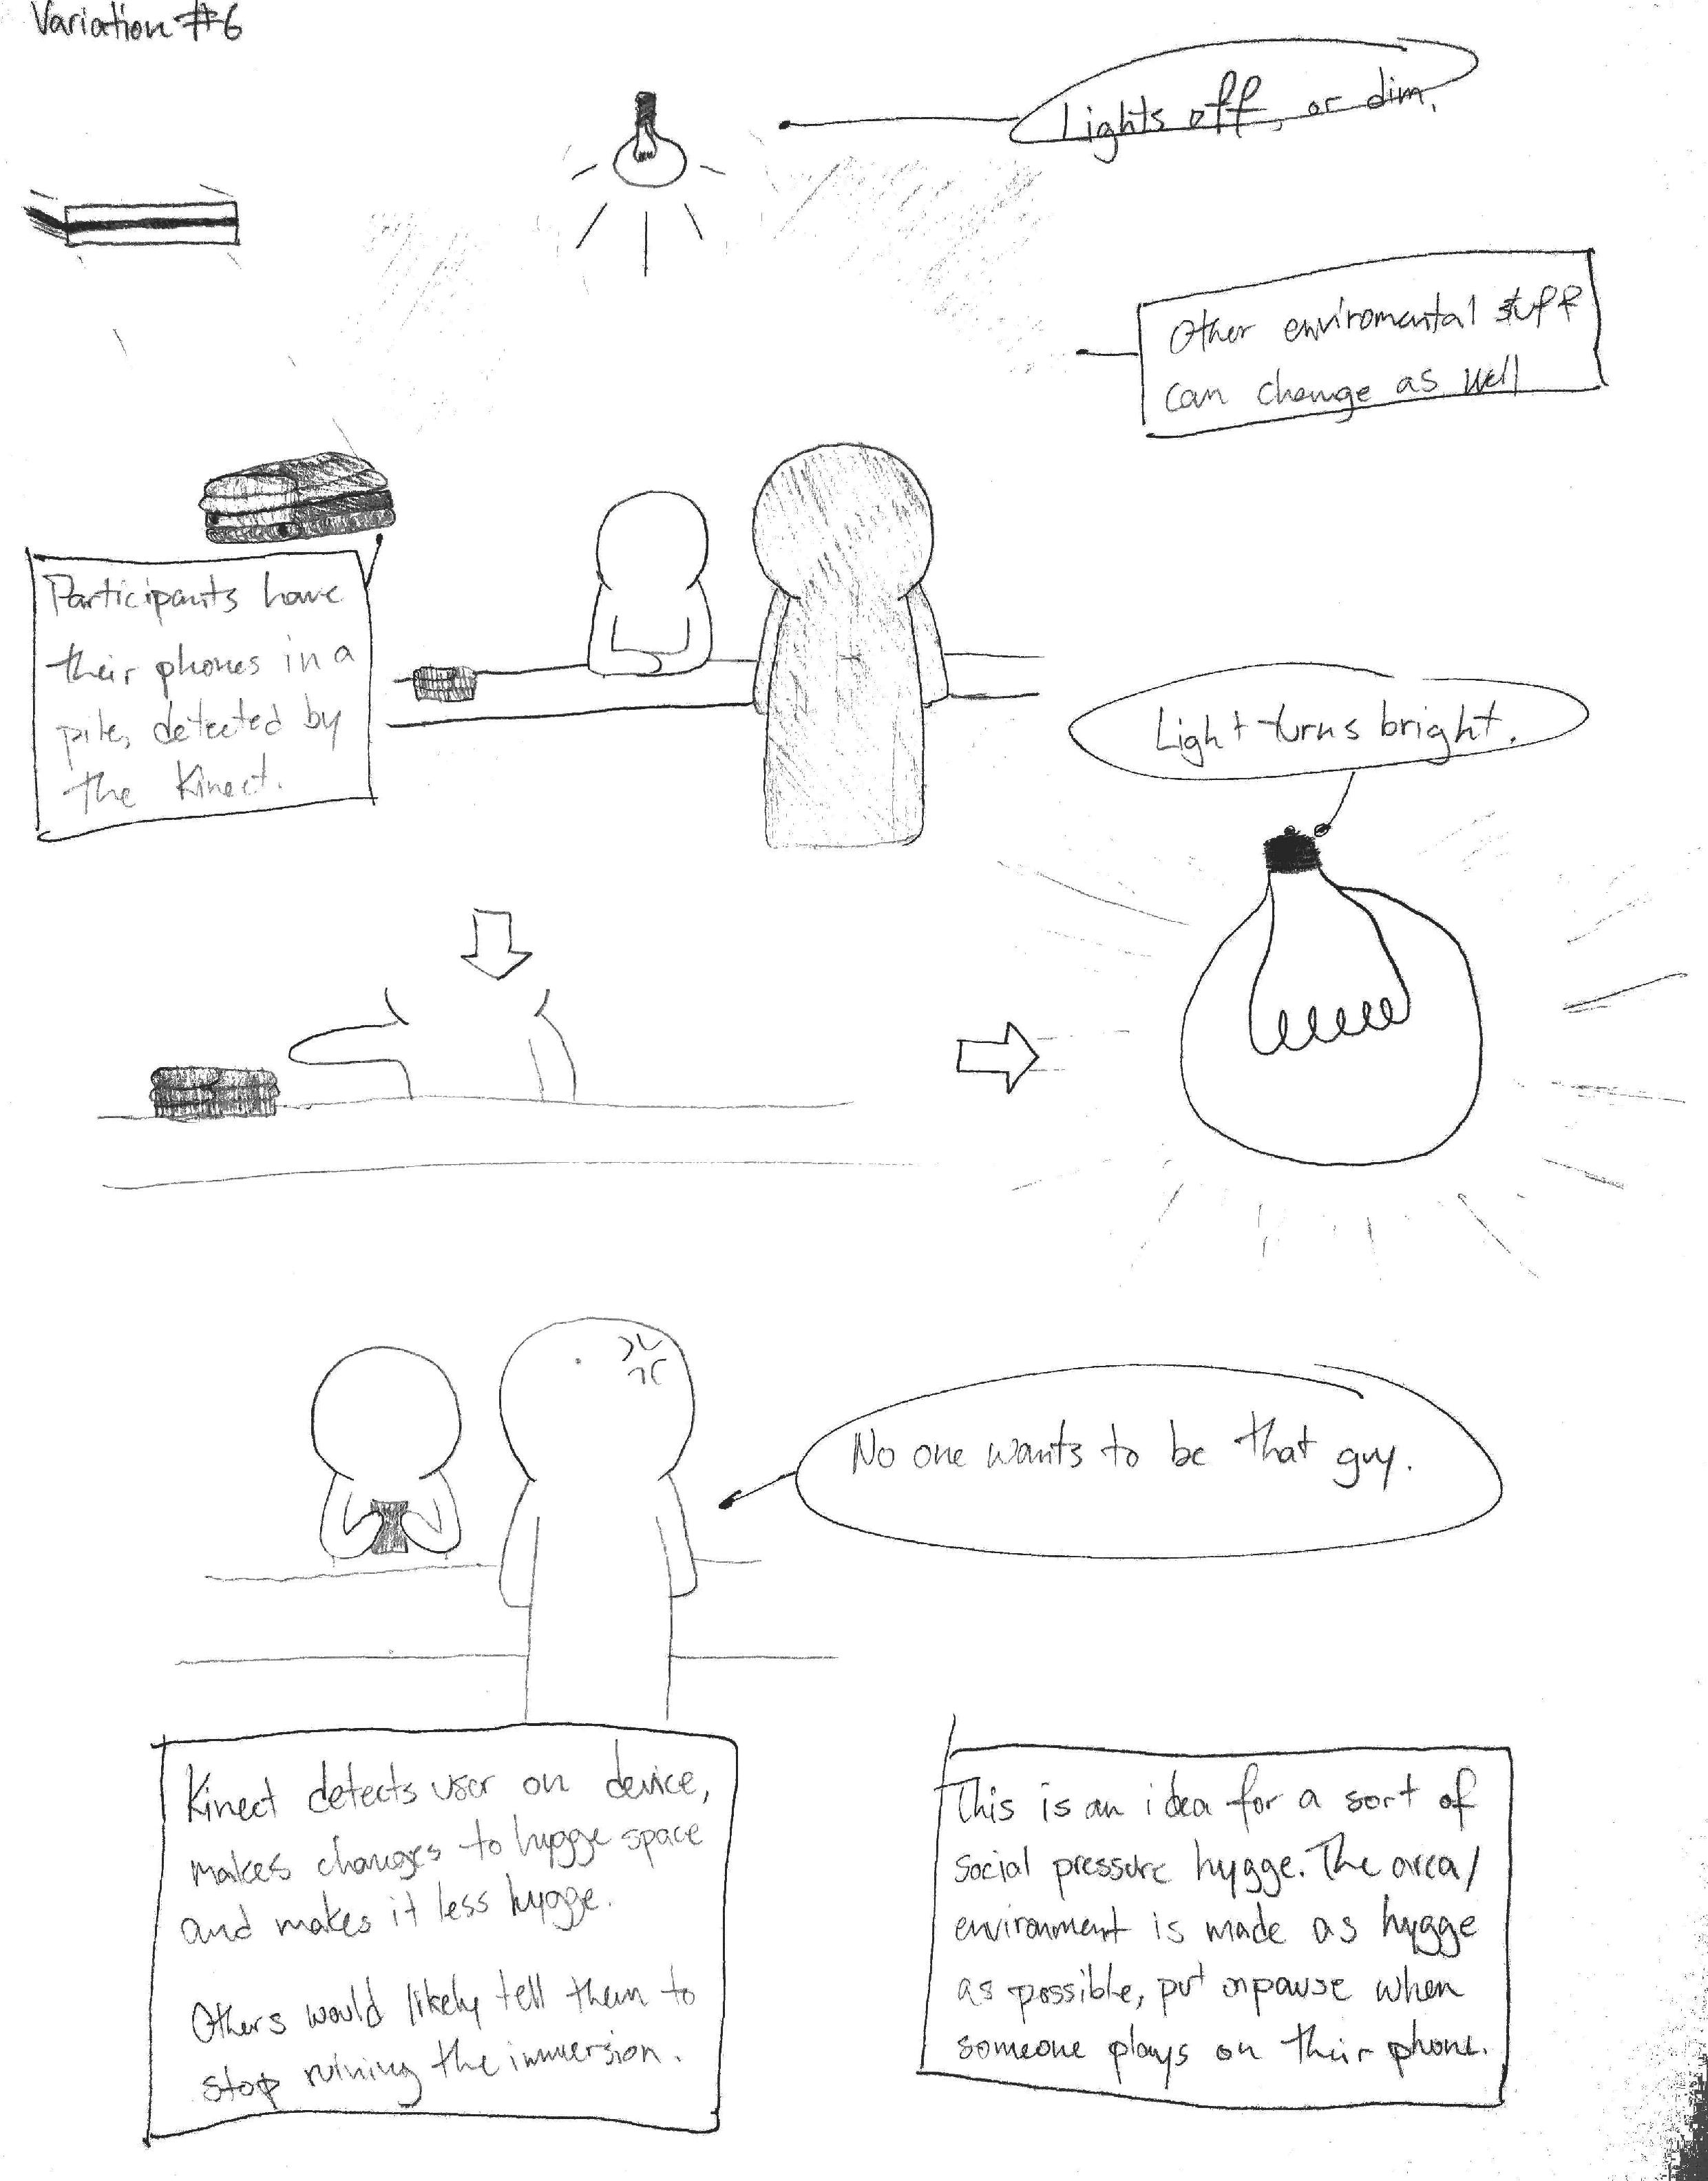 Variation #6
Lights off, or dim.
Other enviromental stuff
can change as well
Participants have
their phones in a
pile, detected by
the Kinect.
Light turns bright.
No one wants to be that guy.
Kinect detects user on device,
makes changes to hygge space
and makes it less hygge.
Others would likely tell them to
stop ruining the immersion.
This is an idea for a sort of
social pressure hygge. The area/
environment is made as hygge
as possible, put on pause when
someone plays on their phone.